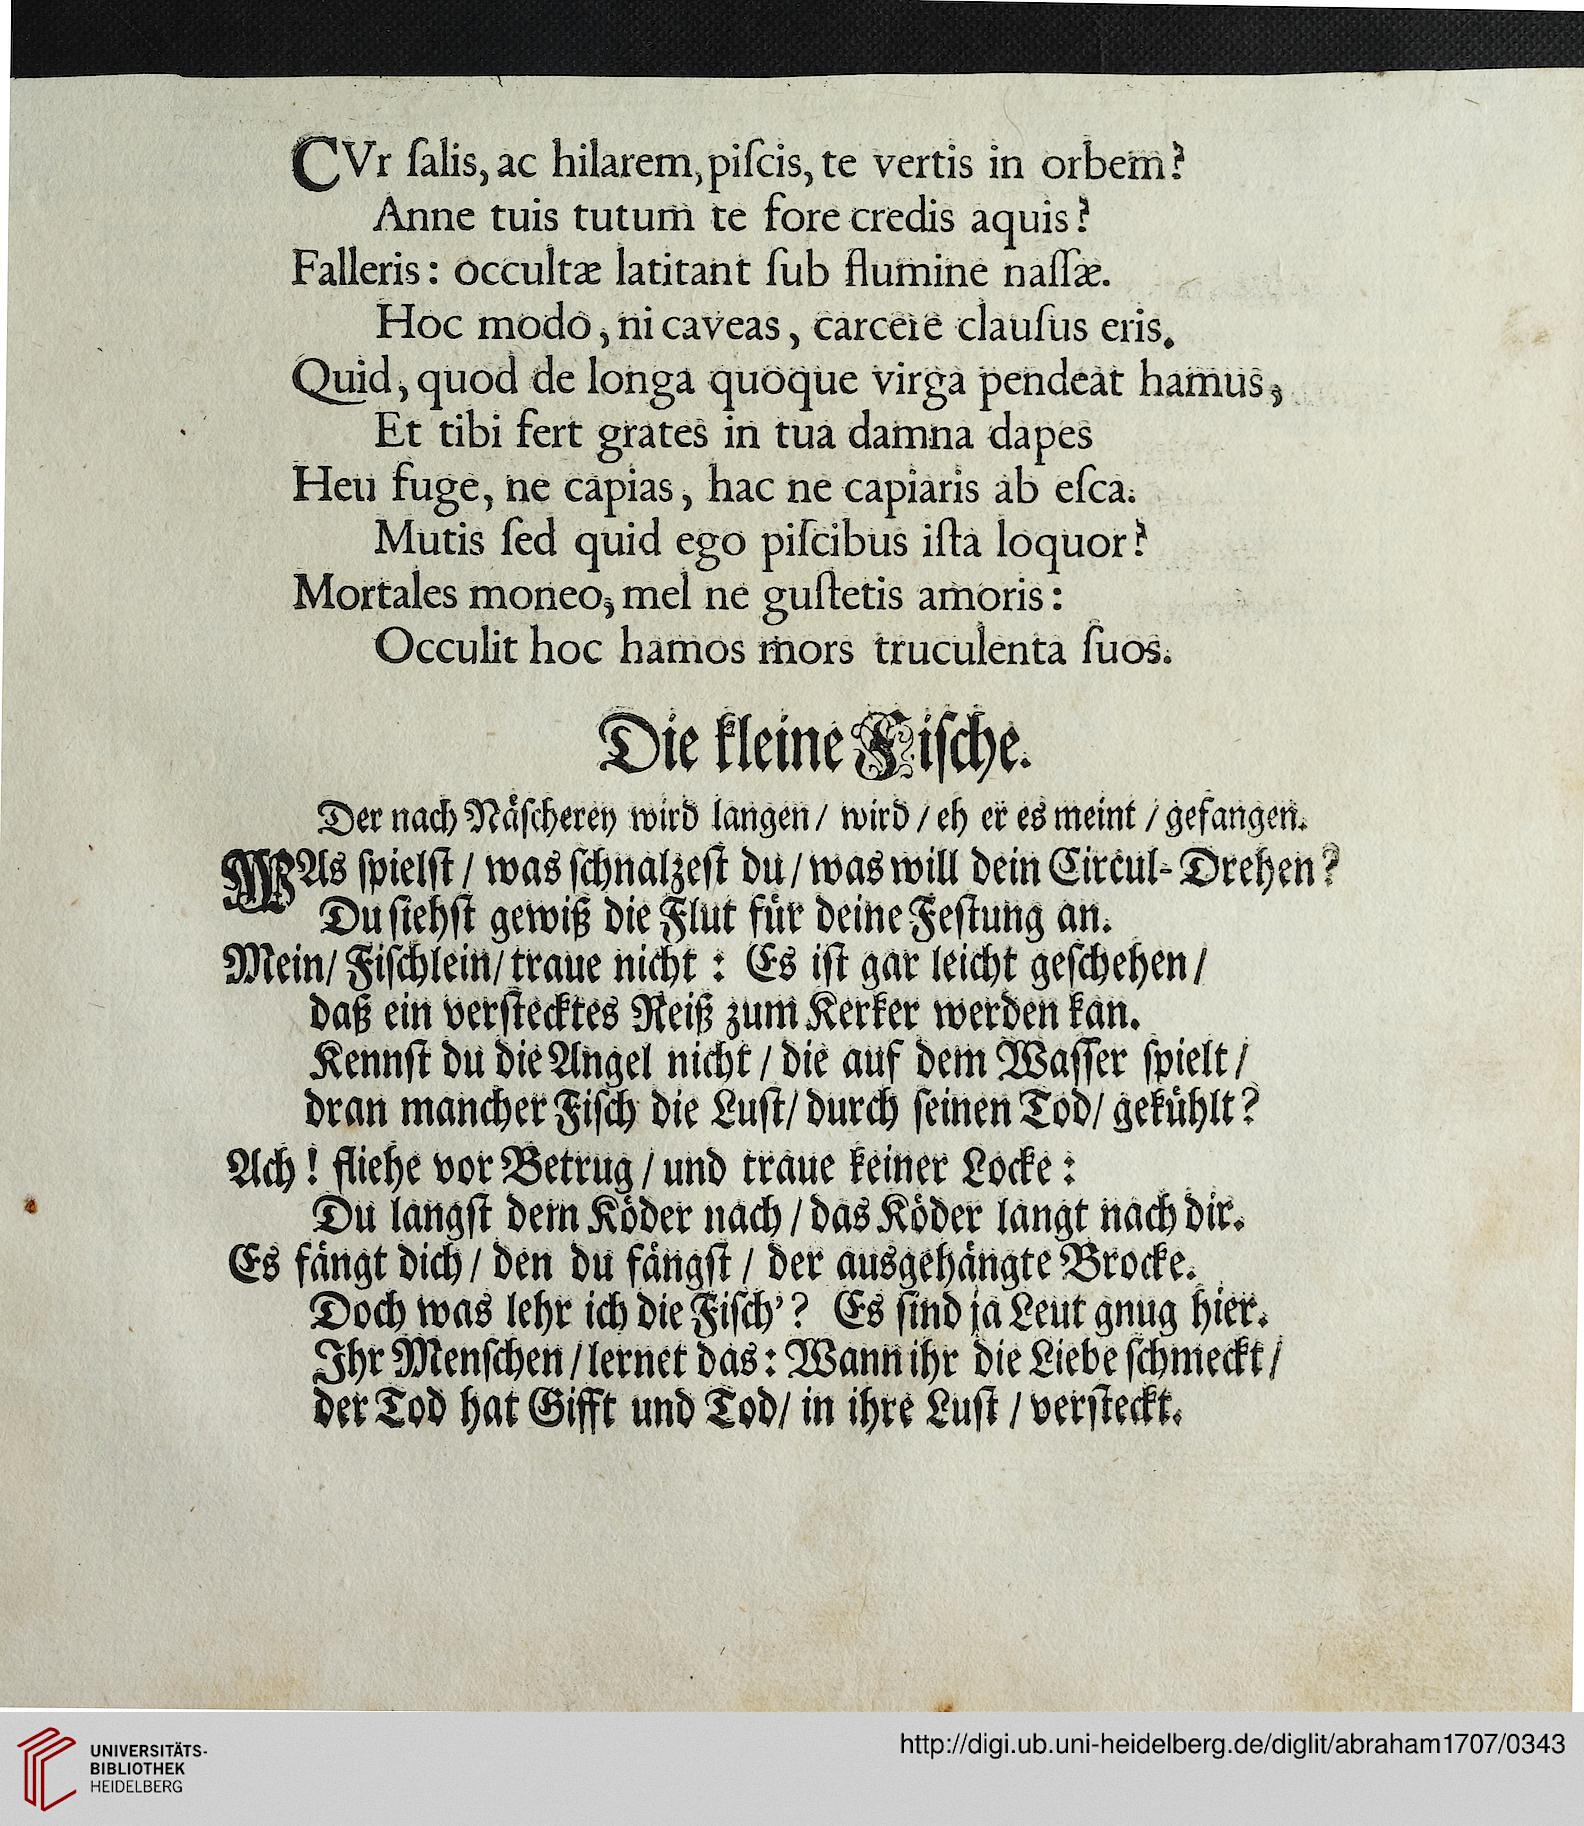 CVr ſalis, ac hilarem, piſcis, te vertis in orbem?
Anne tuis tutum te fore credis aquis?
Falleris: occultæ latitant ſub flumine naſſæ.
Hoc modo, ni caveas, carcere clauſus eris.
Quid, quod de longa quoque virga pendeat hamus,
Et tibi fert grates in tua damna dapes
Heu fuge, ne capias, hac ne capiaris ab eſca.
Mutis ſed quid ego piſcibus iſta loquor?
Mortales moneo, mel ne guſtetis amoris:
Occulit hoc hamos mors truculenta ſuos.
Die kleine Fiſche.
Der nach Nåſcherey wird langen / wird / eh er es meint / gefangen.
WAs ſpielſt / was ſchnalzeſt du / was will dein Circul-Drehen?
Du ſiehſt gewiß die Flut für deine Feſtung an.
Mein / Fiſchlein / traue nicht: Es iſt gar leicht geſchehen /
daß ein verſtecktes Reiß zum Kerker werden kan.
Kennſt du die Angel nicht / die auf dem Waſſer ſpielt /
dran mancher Fiſch die Luſt / durch ſeinen Tod / gekühlt?
Ach! fliehe vor Betrug / und traue keiner Locke:
Du langſt dem Kőder nach / das Kőder langt nach dir.
Es fångt dich / den du fångſt / der ausgehångte Brocke.
Doch was lehr ich die Fiſch'? Es ſind ja Leut gnug hier.
Ihr Menſchen / lernet das: Wann ihr die Liebe ſchmeckt /
der Tod hat Gifft und Tod / in ihre Luſt / verſteckt.
UNIVERSITÄTS-
BIBLIOTHEK
HEIDELBERG
http://digi.ub.uni-heidelberg.de/diglit/abraham1707/0343